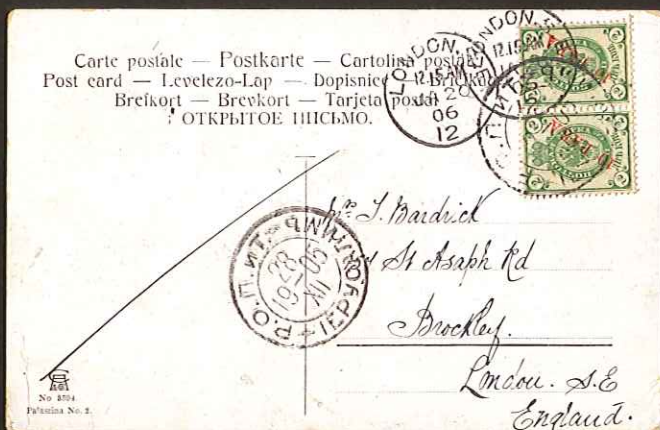 Carte postale — Postkarte — Cartolina postale
Post card — Levelezo-Lap — Dopisnice — Briefkaart
Brefkort — Brevkort — Tarjeta postal
ОТКРЫТОЕ ПИСЬМО.
LONDON.
12.15 AM
JA 20
06
12
LONDON.
12.15 AM
Р.О.П. и Т.
ІЕРУСАЛИМЪ
28
XII
19 05
Mrs J. Bardrick
St Asaph Rd
Brockley.
London. S.E
England.
No 3504
Palästina No. 2.